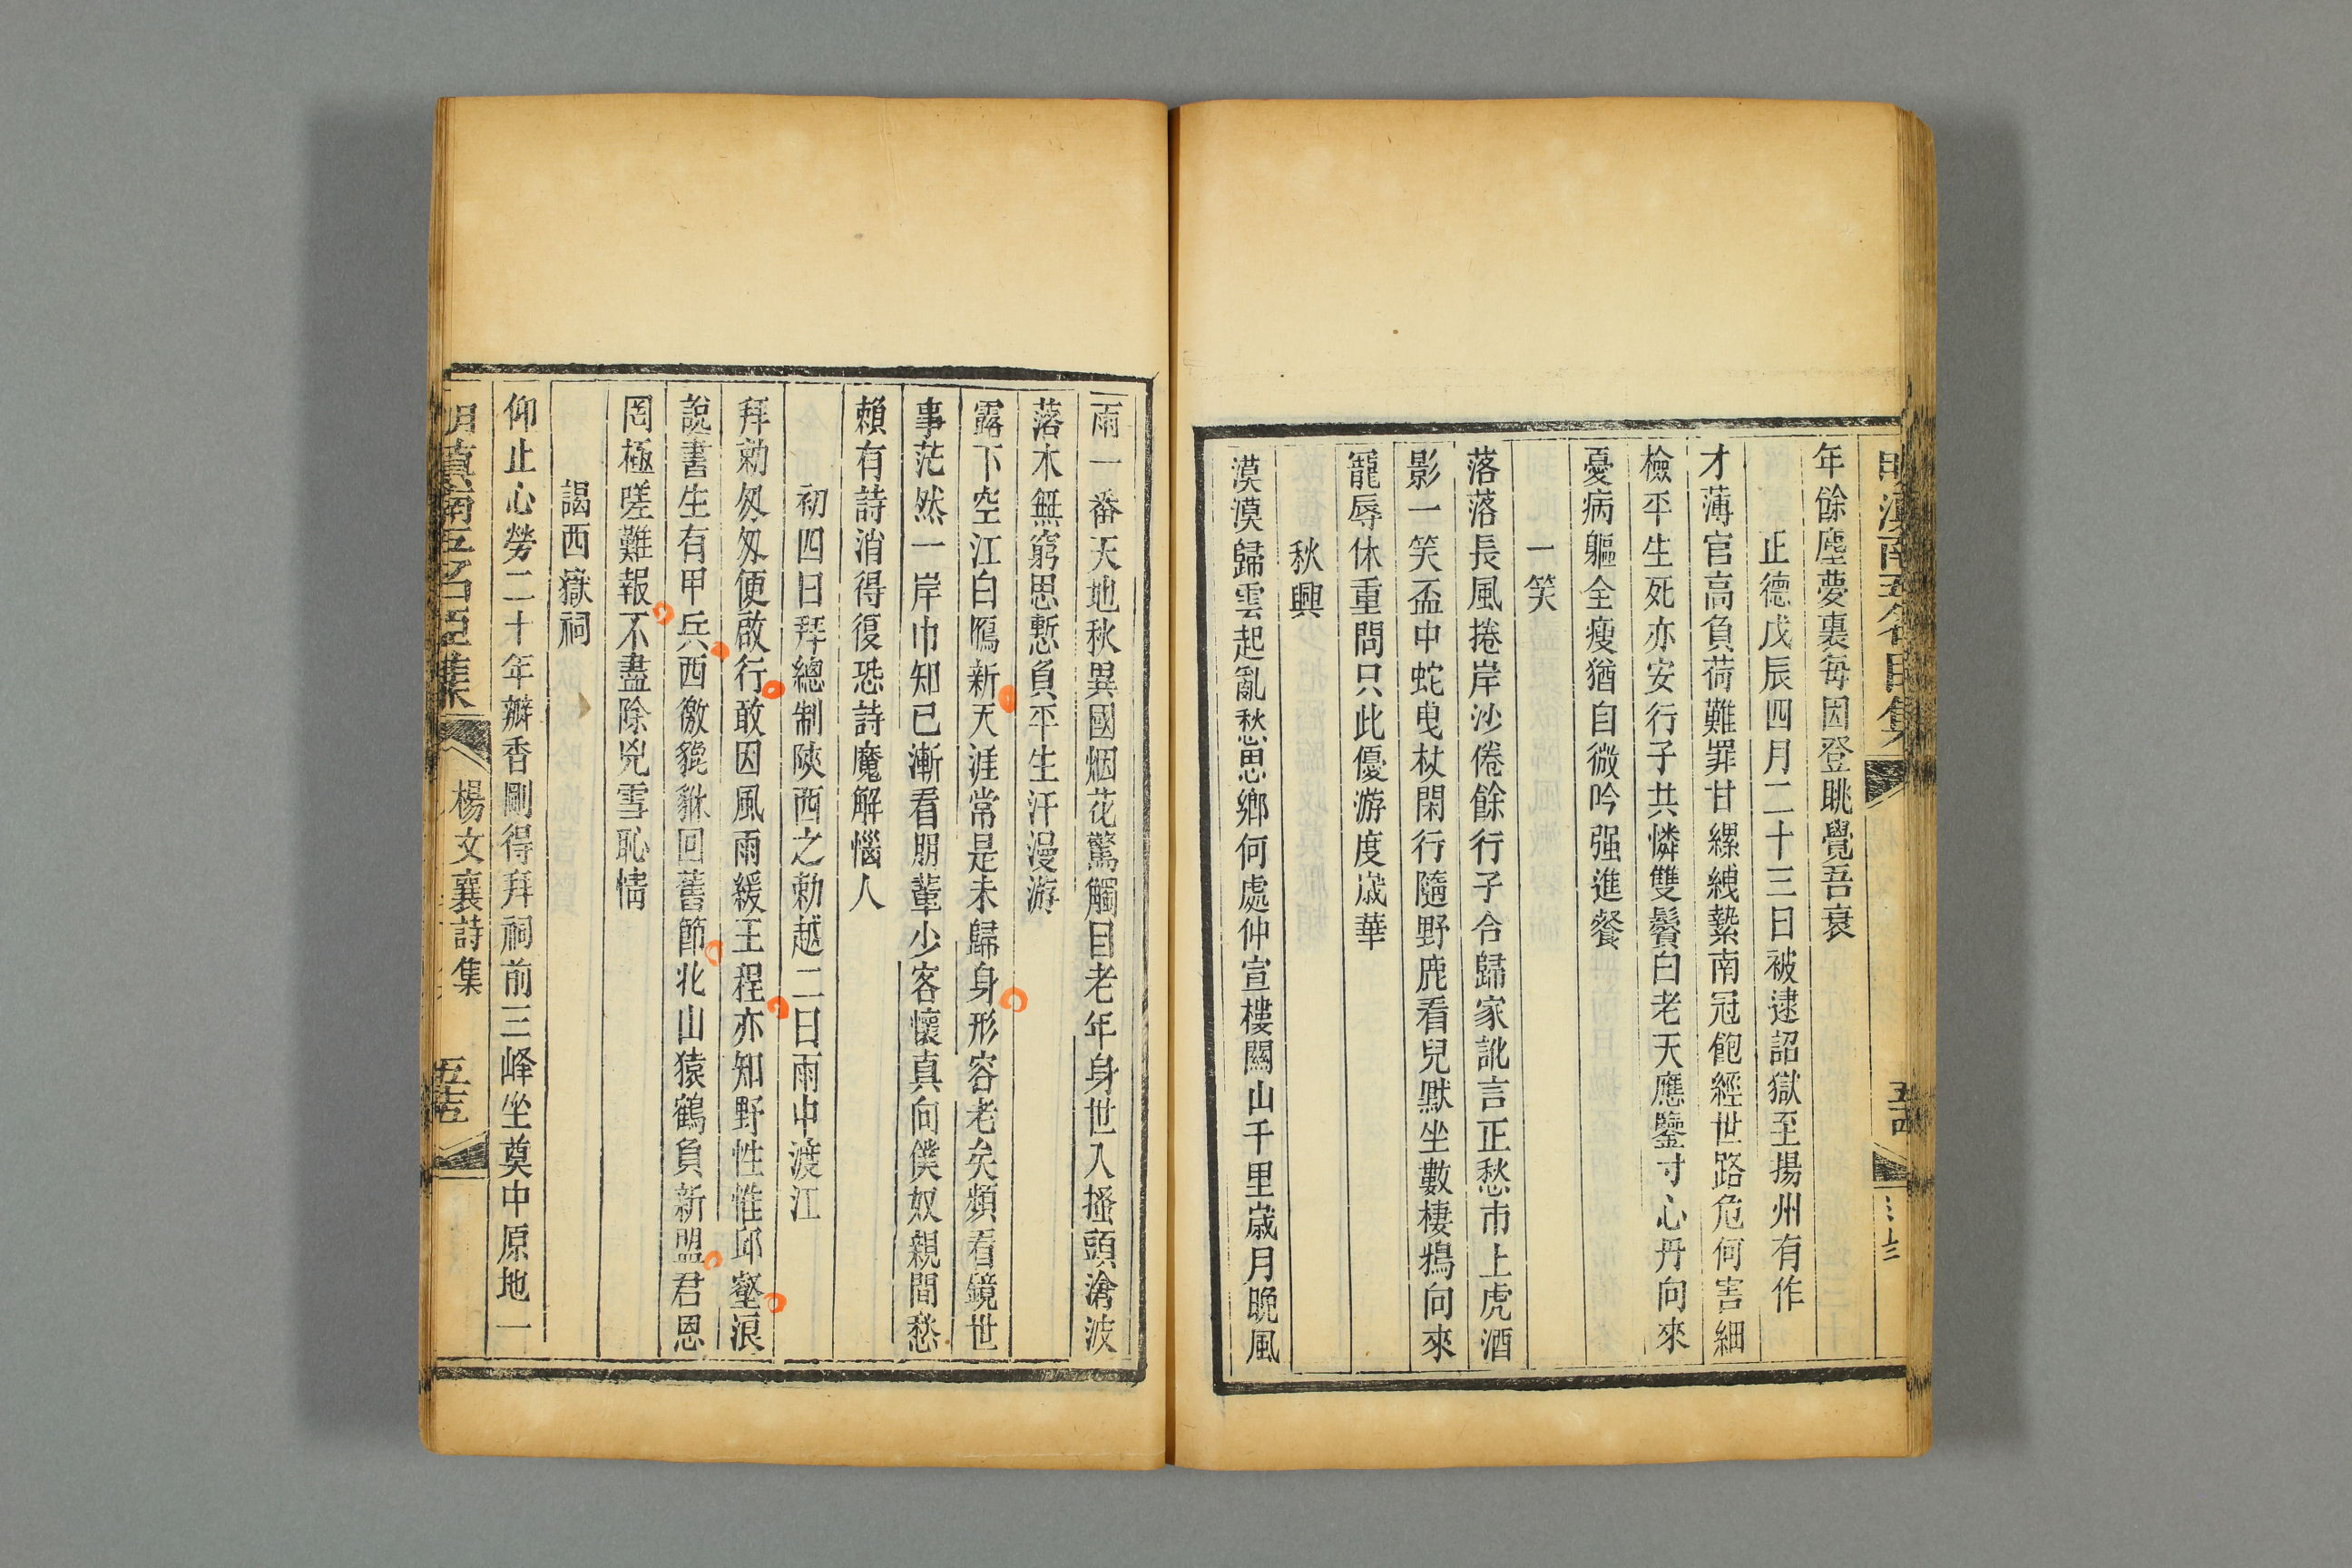 年餘塵夢裏每因登眺覺吾衰
正德戊辰四月二十三日被逮詔獄至揚州有作
才薄官高負荷難罪甘縲絏縶南冠飽經世路危何害細
檢平生死亦安行子共憐雙鬢白老天應鑒寸心丹向來
憂病軀全瘦猶自微吟强進餐
一笑
落落長風捲岸沙倦餘行子合歸家訛言正愁市上虎酒
影一笑盃中蛇曳杖閑行隨野鹿看兒默坐數棲鴉向來
寵辱休重問只此優游度歲華
秋興
漠漠歸雲起亂愁思鄉何處仲宣樓關山千里歲月晚風
雨一番天地秋異國烟花驚觸目老年身世入搔頭滄波
落木無窮思慙負平生汗漫游
露下空江白鴈新天涯常是未歸身形容老矣頻看鏡世
事茫然一岸巾知已漸看朋輩少客懷真向僕奴親間愁
賴有詩消得復恐詩魔解惱人
初四日拜總制陜西之勅越二日雨中渡江
拜勅匆匆便啟行敢因風雨緩王程亦知野性惟邱壑浪
說書生有甲兵西徼貔貅回舊節北山猿鶴負新盟君恩
罔極嗟難報不盡除兇雪恥情
謁西嶽祠
仰止心勞二十年瓣香剛得拜祠前三峰坐奠中原地一
明滇南五名臣集
楊文襄詩集